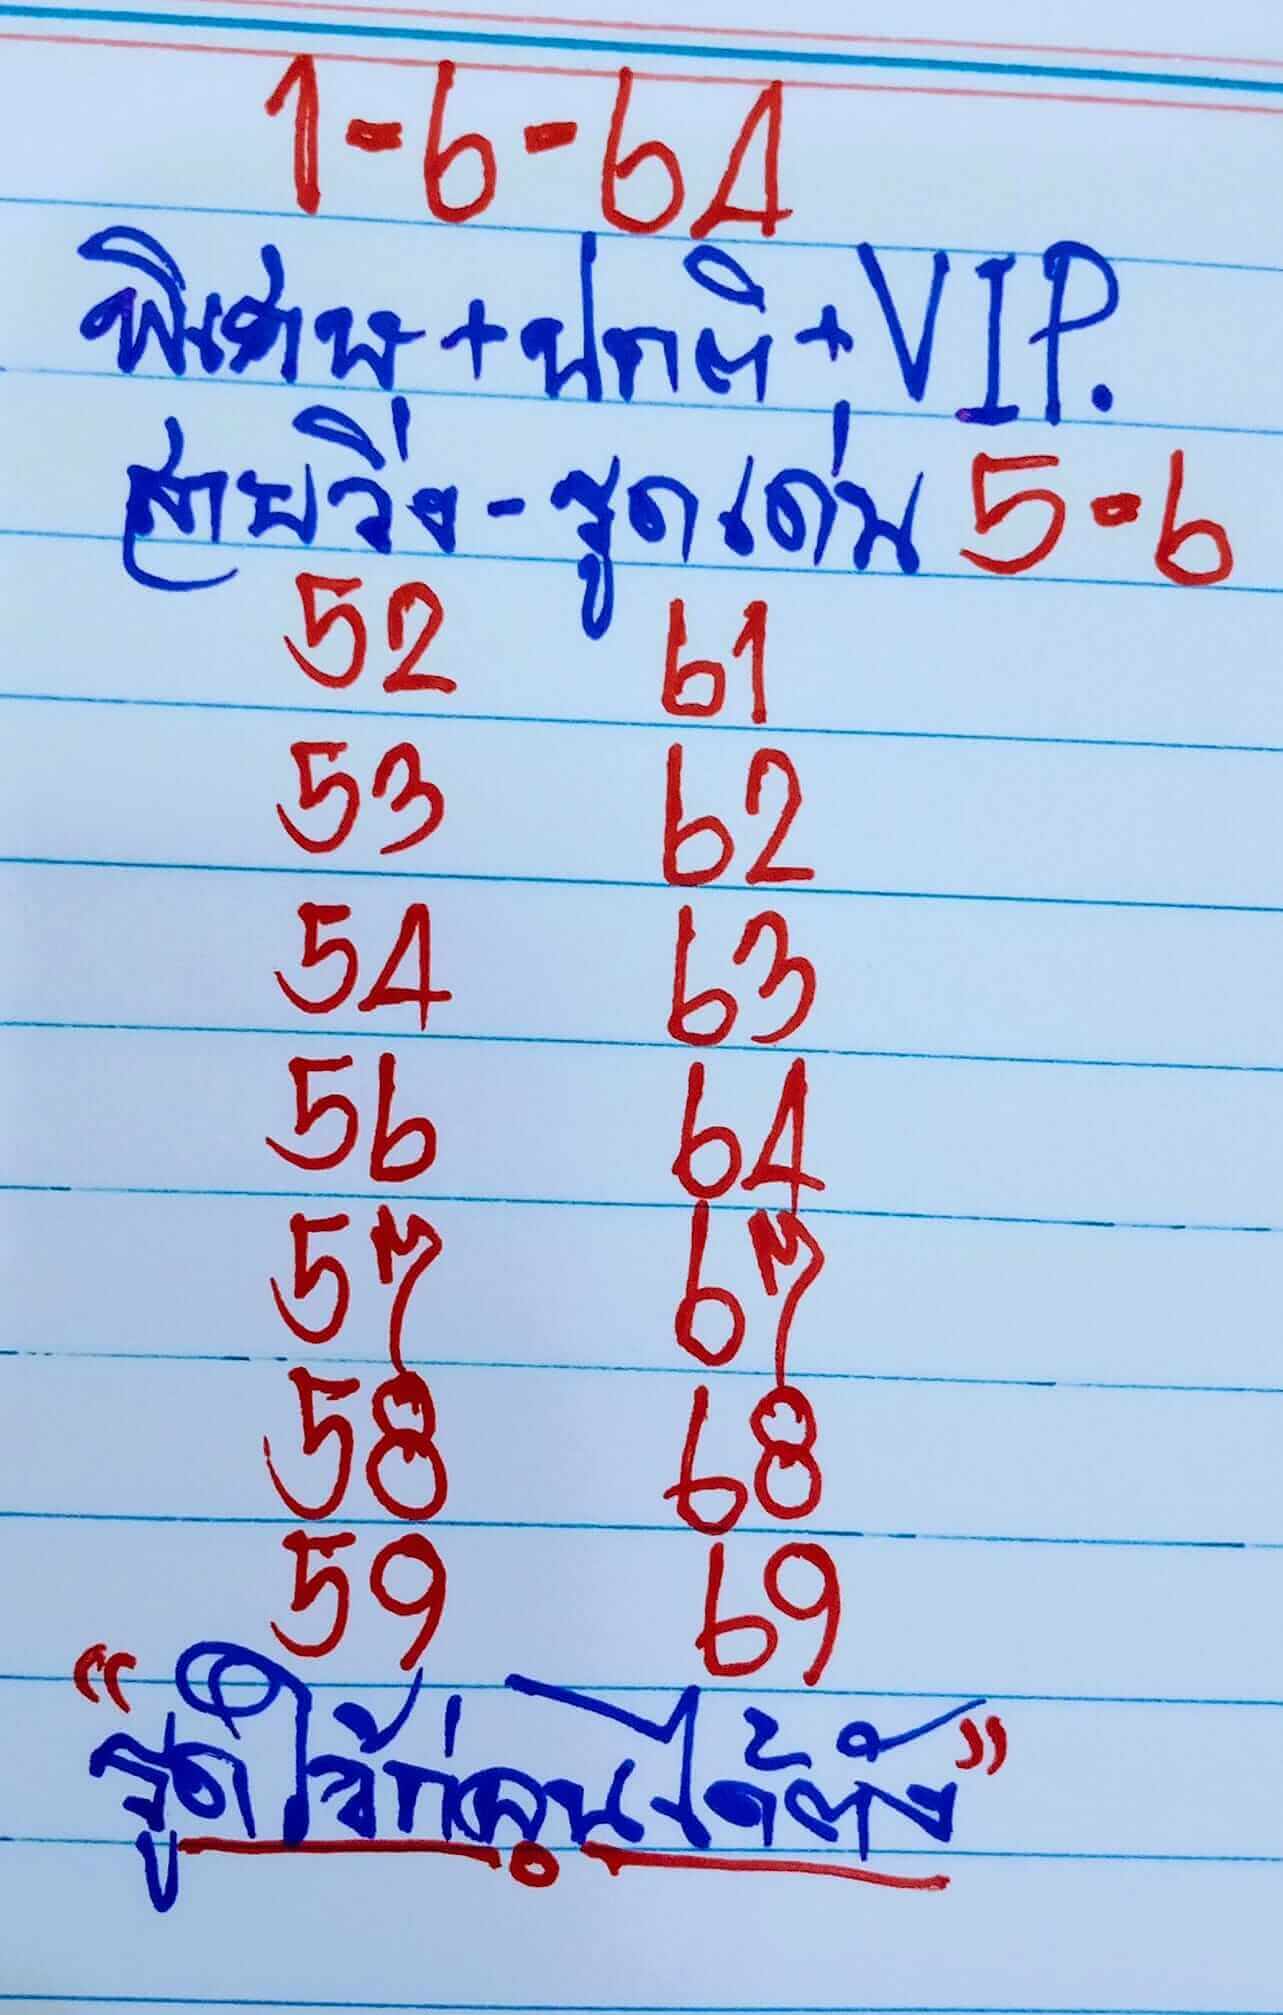 1-6-64
พิเศษ+ปกติ+VIP.
สายวิ่ง-รูดเด่น 5-6
52 61
53 62
54 63
56 64
57 67
58 68
59 69
"รูดใว้ก่อนได้ตัง"